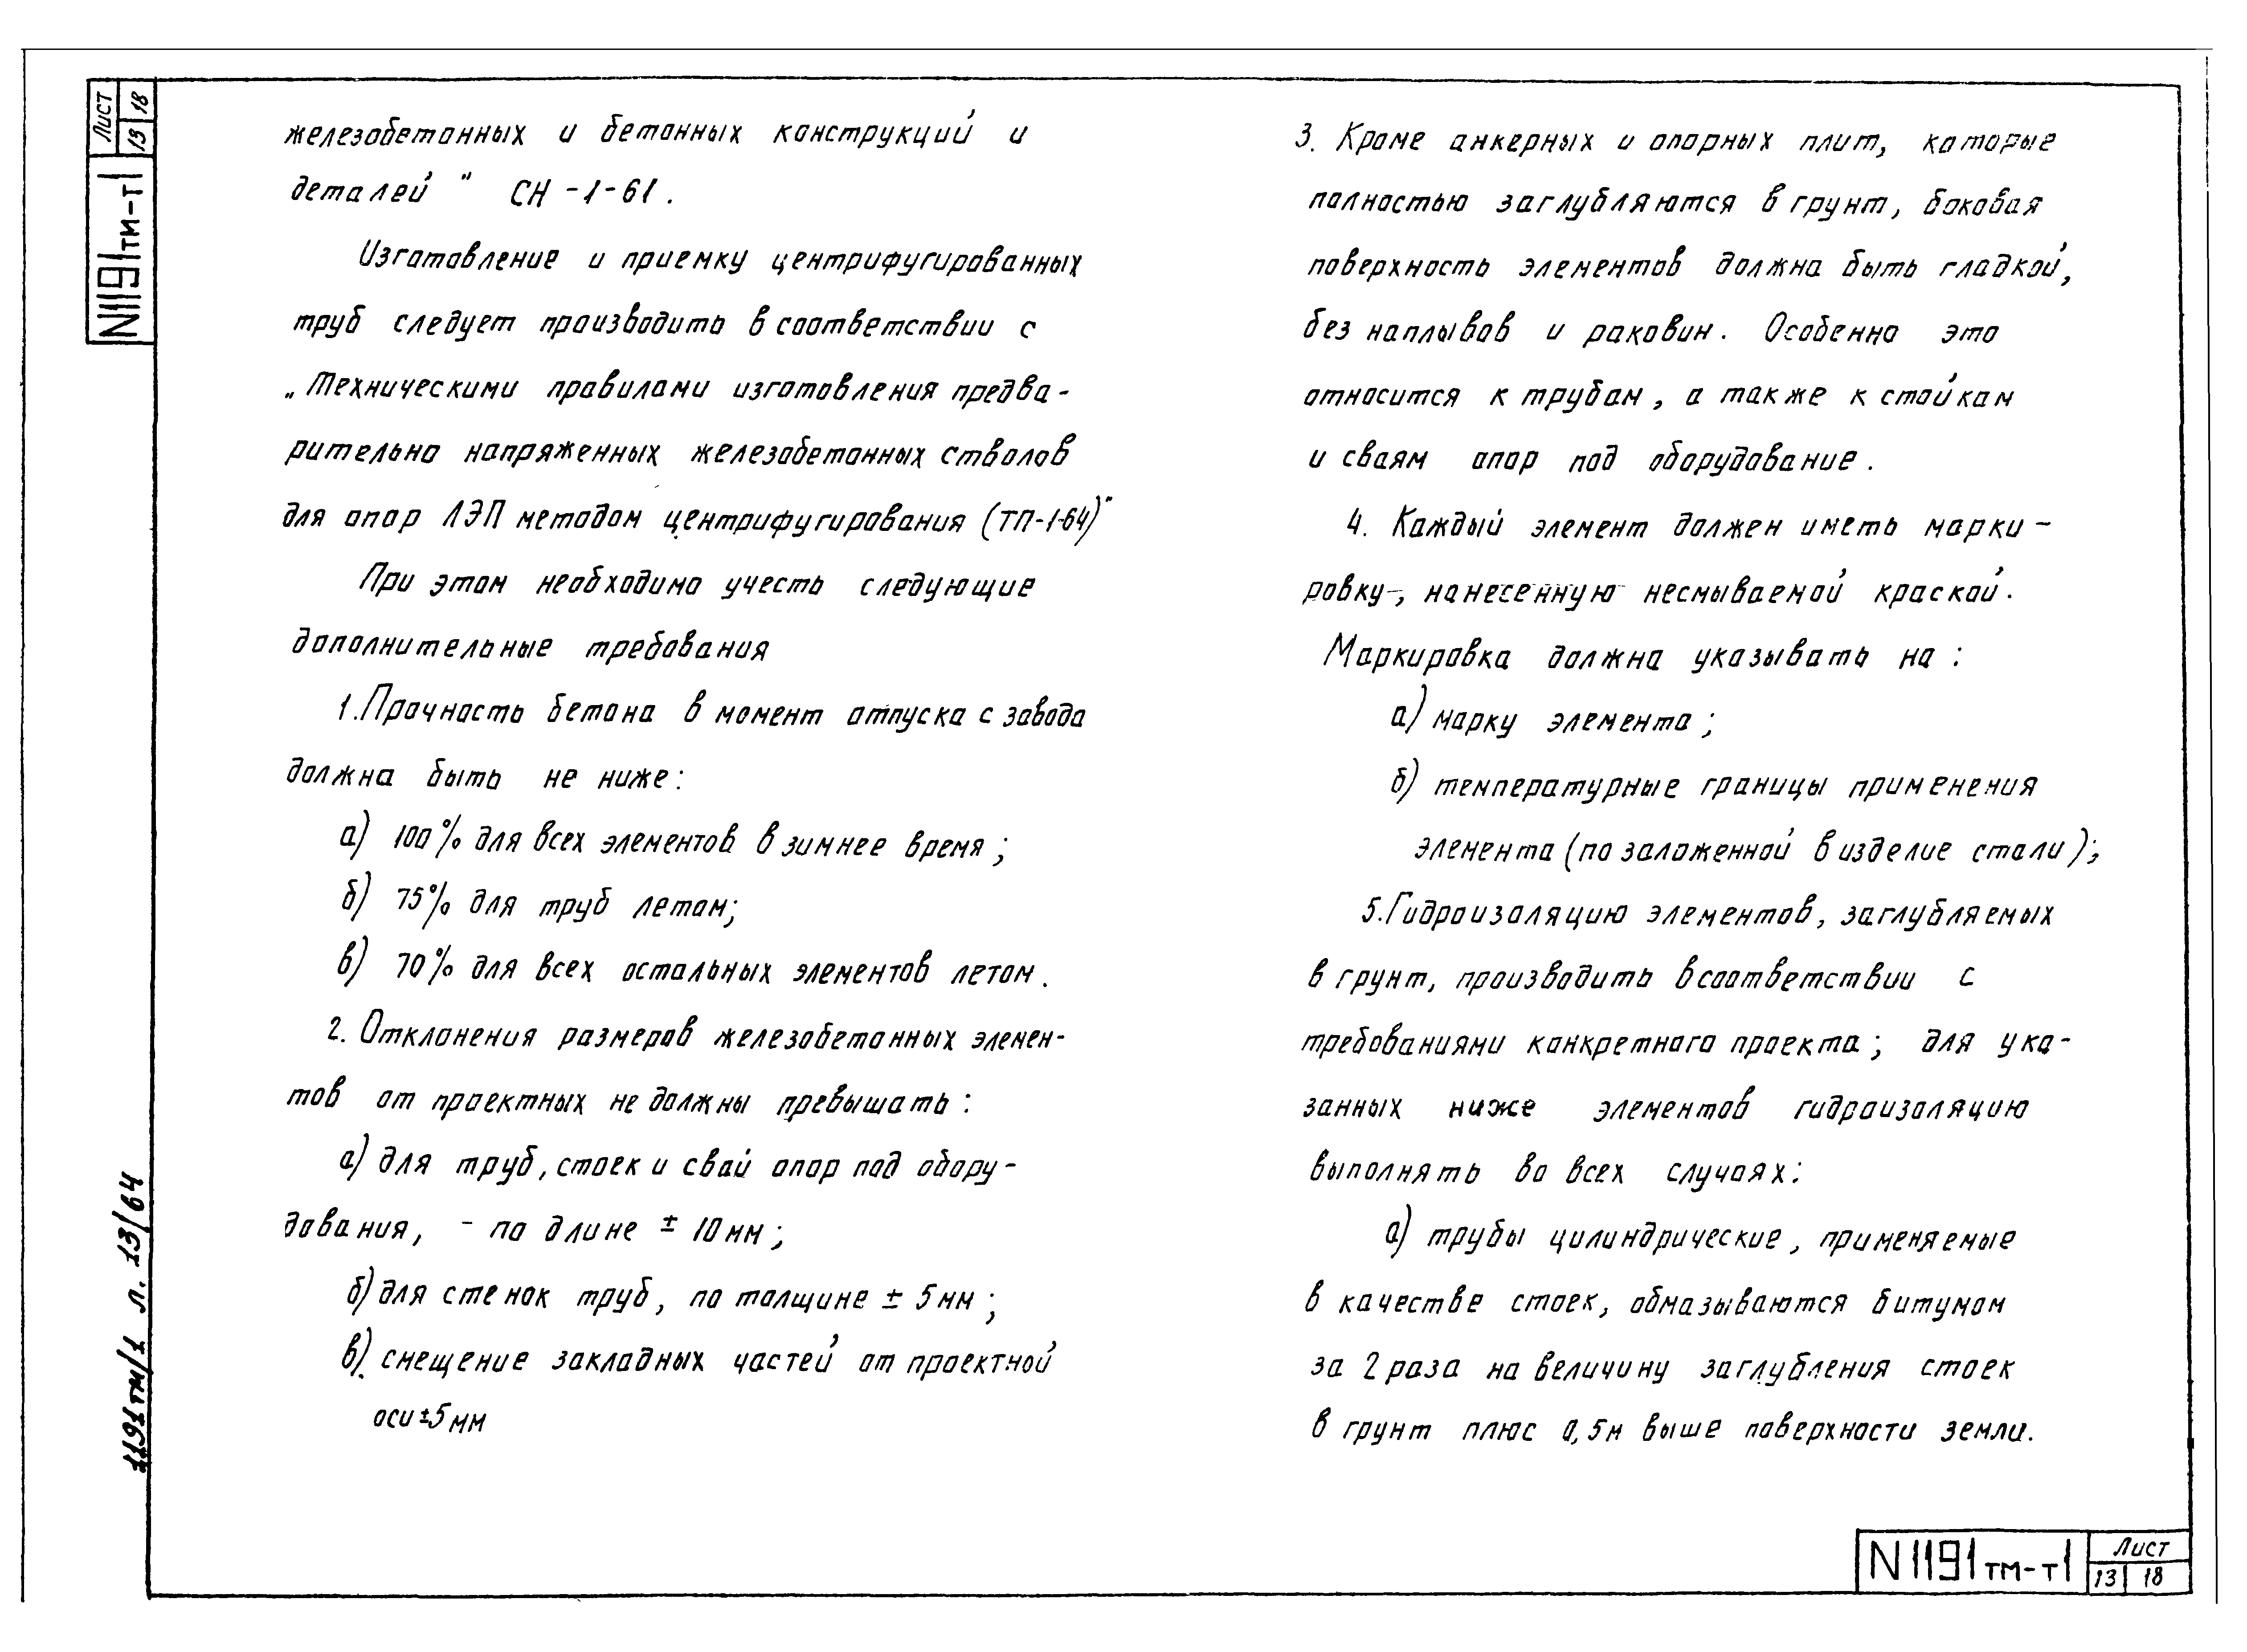 Лист
13 18
N1191тм-т1
железобетонных и бетонных конструкций и
деталей" СН-1-61.
Изготовление и приемку центрифугированных
труб следует производить в соответствии с
„Техническими правилами изготовления предва-
рительно напряженных железобетонных стволов
для опор ЛЭП методом центрифугирования (ТП-1-64)"
При этом необходимо учесть следующие
дополнительные требования
1. Прочность бетона в момент отпуска с завода
должна быть не ниже:
а) 100% для всех элементов в зимнее время;
б) 75% для труб летом;
в) 70% для всех остальных элементов летом.
2. Отклонения размеров железобетонных элемен-
тов от проектных не должны превышать:
а) для труб, стоек и свай опор под обору-
дования, - по длине ± 10мм;
б) для стенок труб, по толщине ± 5мм;
в) смещение закладных частей от проектной
оси ±5мм
3. Кроме анкерных и опорных плит, которые
полностью заглубляются в грунт, боковая
поверхность элементов должна быть гладкой,
без наплывов и раковин. Особенно это
относится к трубам, а также к стойкам
и сваям опор под оборудование.
4. Каждый элемент должен иметь марки-
ровку, нанесенную несмываемой краской.
Маркировка должна указывать на:
а) марку элемента;
б) температурные границы применения
элемента (по заложенной в изделие стали);
5. Гидроизоляцию элементов, заглубляемых
в грунт, производить в соответствии с
требованиями конкретного проекта; для ука-
занных ниже элементов гидроизоляцию
выполнять во всех случаях:
а) трубы цилиндрические, применяемые
в качестве стоек, обмазываются битумом
за 2 раза на величину заглубления стоек
в грунт плюс 0,5м выше поверхности земли.
1191тм/1 л. 13/64
N1191тм-т1
Лист
13 18